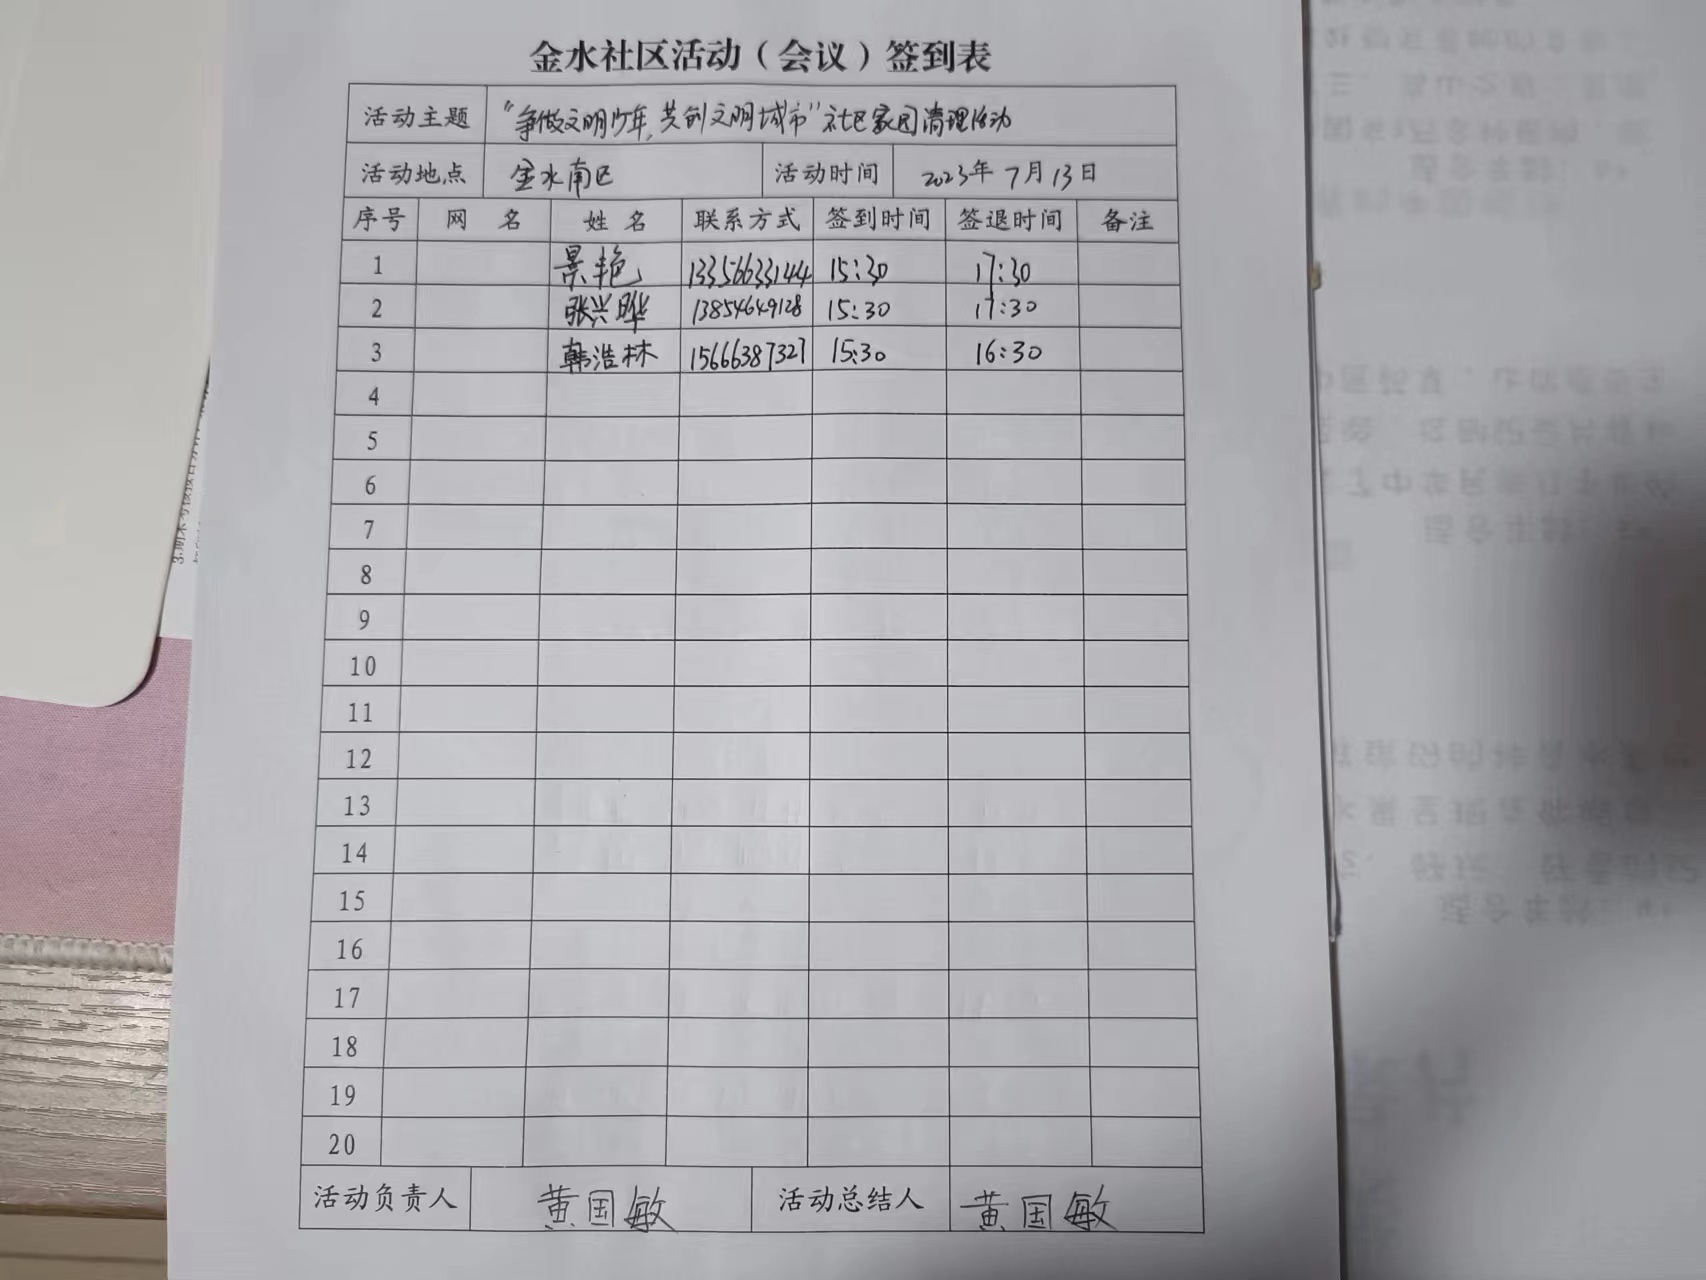 金水社区活动（会议）签到表
活动主题 “争做文明少年，共创文明城市”社区家园清理活动
活动地点 金水南区 活动时间 2023年7月13日
序号 网 名 姓 名 联系方式 签到时间 签退时间 备注
1 景艳 13356633144 15:30 17:30
2 张兴晔 13854649128 15:30 17:30
3 韩浩林 15666387327 15:30 16:30
4
5
6
7
8
9
10
11
12
13
14
15
16
17
18
19
20
活动负责人 黄国敏 活动总结人 黄国敏